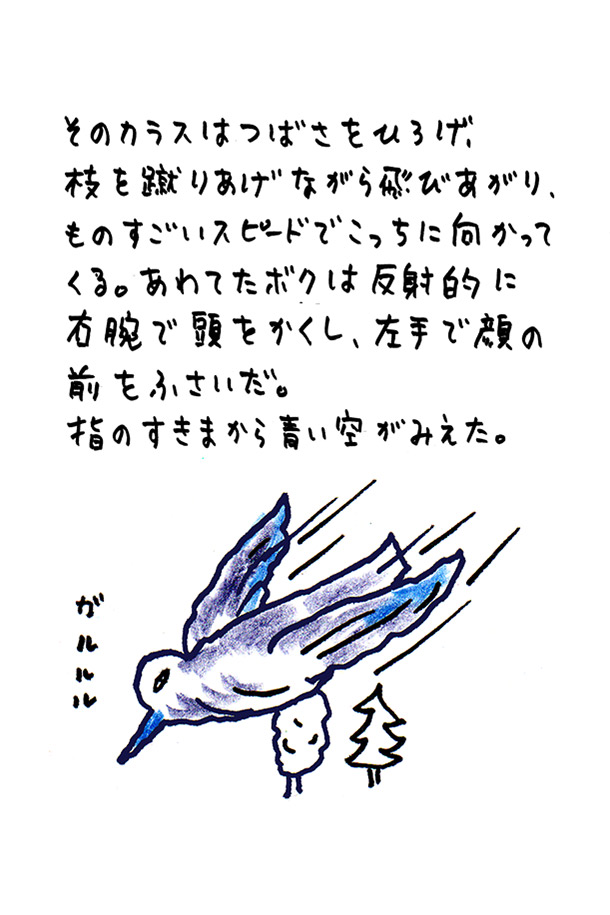 そのカラスはつばさをひろげ、
枝を蹴りあげながら飛びあがり、
ものすごいスピードでこっちに向かって
くる。あわてたボクは反射的に
右腕で頭をかくし、左手で顔の
前をふさいだ。
指のすきまから青い空がみえた。
ガルルル